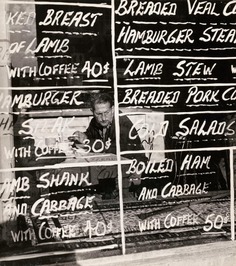 BREAST
OF LAMB
WITH COFFEE 40¢
HAMBURGER
STEAK
WITH COFFEE 30¢
LAMB SHANK
AND CABBAGE
WITH COFFEE 40¢
BREADED VEAL
HAMBURGER STEA
LAMB STEW
BREADED PORK C
COLD SALADS
BOILED HAM
AND CABBAGE
WITH COFFEE 50¢